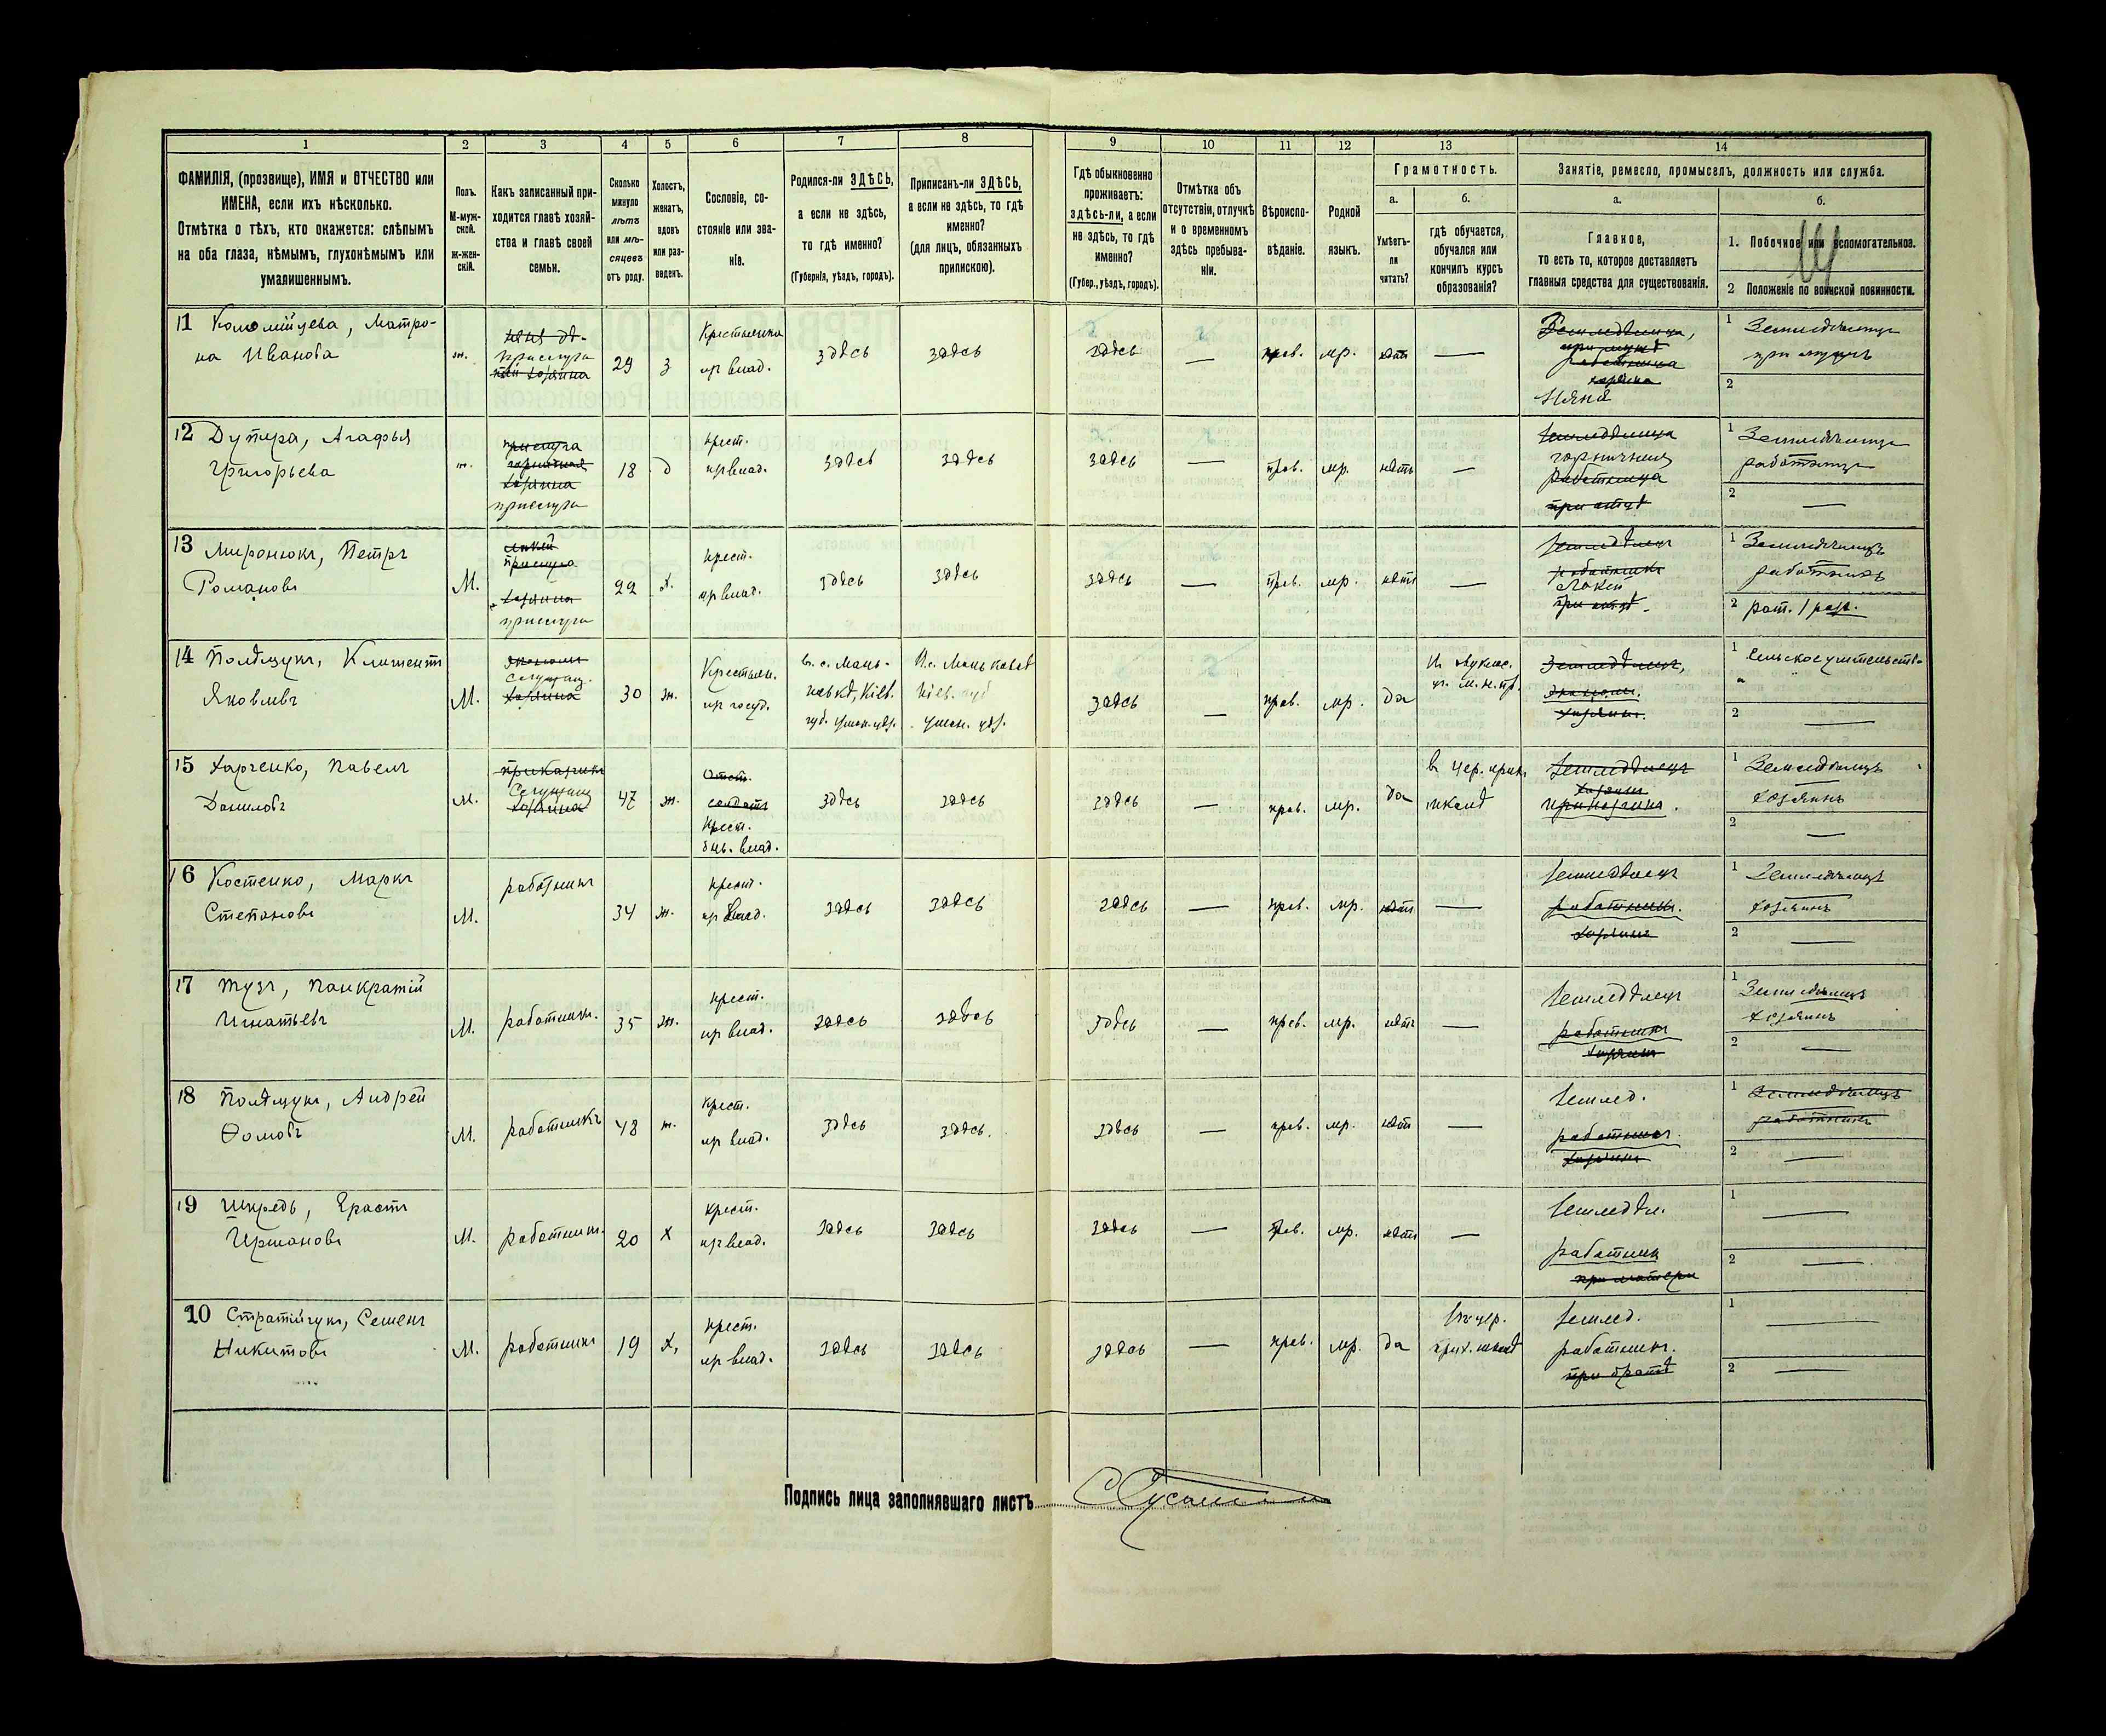 1
2
3
4
5
6
7
8
9
10
11
12
13
14
ФАМИЛІЯ, (прозвище), ИМЯ и ОТЧЕСТВО или
ИМЕНА, если ихъ нѣсколько.
Отмѣтка о тѣхъ, кто окажется: слѣпымъ
на оба глаза, нѣмымъ, глухонѣмымъ или
умалишеннымъ.
Полъ.
М-муж-
ской.
Ж-жен-
скій.
Какъ записанный при-
ходится главѣ хозяй-
ства и главѣ своей
семьи.
Сколько
минуло
лѣтъ
или мѣ-
сяцевъ
отъ роду.
Холостъ,
женатъ,
вдовъ
или раз-
веденъ.
Сословіе, со-
стояніе или зва-
ніе.
Родился-ли ЗДѢСЬ,
а если не здѣсь,
то гдѣ именно?
(Губернія, уѣздъ, городъ).
Приписанъ-ли ЗДѢСЬ,
а если не здѣсь, то гдѣ
именно?
(для лицъ, обязанныхъ
припискою).
Гдѣ обыкновенно
проживаетъ:
здѣсь-ли, а если
не здѣсь, то гдѣ
именно?
(Губер., уѣздъ, городъ).
Отмѣтка объ
отсутствіи, отлучкѣ
и о временномъ
здѣсь пребыва-
ніи.
Вѣроиспо-
вѣданіе.
Родной
языкъ.
Грамотность.
а.
Умѣетъ-
ли
читать?
б.
гдѣ обучается,
обучался или
кончилъ курсъ
образованія?
Занятіе, ремесло, промыселъ, должность или служба.
а.
Главное,
то есть то, которое доставляетъ
главныя средства для существованія.
б.
1. Побочное или вспомогательное.
2 Положеніе по воинской повинности.
11 Коломійцева, Матро-
на Иванова
ж.
прислуга
29
з
Крестьянка
пр влад.
здѣсь
здѣсь
здѣсь
—
прав.
мр.
нѣтъ
—
Няня
1 Земледѣлица
при мужѣ
2
12 Дупира, Агафья
Григорьева
ж.
прислуга
18
д
крест.
пр влад.
здѣсь
здѣсь
здѣсь
—
прав.
мр.
нѣтъ
—
горничная
1 Земледѣлица
работница
2 —
13 Миронюкъ, Петръ
Романовъ
М.
прислуга
22
х.
крест.
пр влад.
здѣсь
здѣсь
здѣсь
—
прав.
мр.
нѣтъ
—
Лакей
1 Земледѣлецъ
работникъ
2 рат. 1 разр.
14 Полѣщукъ, Климентъ
Яковлевъ
М.
30
ж.
Крестьян.
пр госуд.
въ с. Мань-
ковкѣ, Кіев.
губ. Уман. уѣз.
В с. Маньковкѣ
Кіев. губ
Уман. уѣз.
здѣсь
—
прав.
мр.
да
М. Н. пр.
Земледѣлецъ,
экономъ.
хозяинъ.
2 —
15 Харченко, Павелъ
Даниловъ
м.
47
ж.
крест.
влад.
здѣсь
здѣсь
здѣсь
—
прав.
мр.
да
в цер. прих.
школѣ
прикащикъ.
1 Земледѣлецъ
хозяинъ
2 —
16 Костенко, Маркъ
Степановъ
М.
работникъ
34
ж.
крест.
пр влад.
здѣсь
здѣсь
здѣсь
—
прав.
мр.
нѣтъ
—
земледѣлецъ
работникъ.
хозяинъ
1 Земледѣлецъ
хозяинъ
2 —
17 Тузъ, Панкратій
Игнатьевъ
М.
работник.
35
ж.
крест.
пр влад.
здѣсь
здѣсь
здѣсь
—
прав.
мр.
нѣтъ
—
земледѣлецъ
работникъ
хозяинъ
1 Земледѣлецъ
хозяинъ
2 —
18 Полѣщукъ, Андрей
Ѳомовъ
М.
работникъ
48
ж.
крест.
пр влад.
здѣсь
здѣсь.
здѣсь
—
прав.
мр.
нѣтъ
—
землед.
работникъ.
хозяинъ
1 Земледѣлецъ
работникъ
2 —
19 Шкредь, Ерастъ
М.
работник.
20
х
крест.
пр влад.
здѣсь
здѣсь
здѣсь
—
прав.
мр.
нѣтъ
—
земледѣл.
работник
при матери
1 —
2 —
10 Стратійчукъ, Семенъ
Никитовъ
М.
работник
19
х.
крест.
пр влад.
здѣсь
здѣсь
здѣсь
—
прав.
мр.
да
въ цер.
прих. школѣ
землед.
работникъ.
при братѣ
1 —
2 —
Подпись лица заполнявшаго листъ